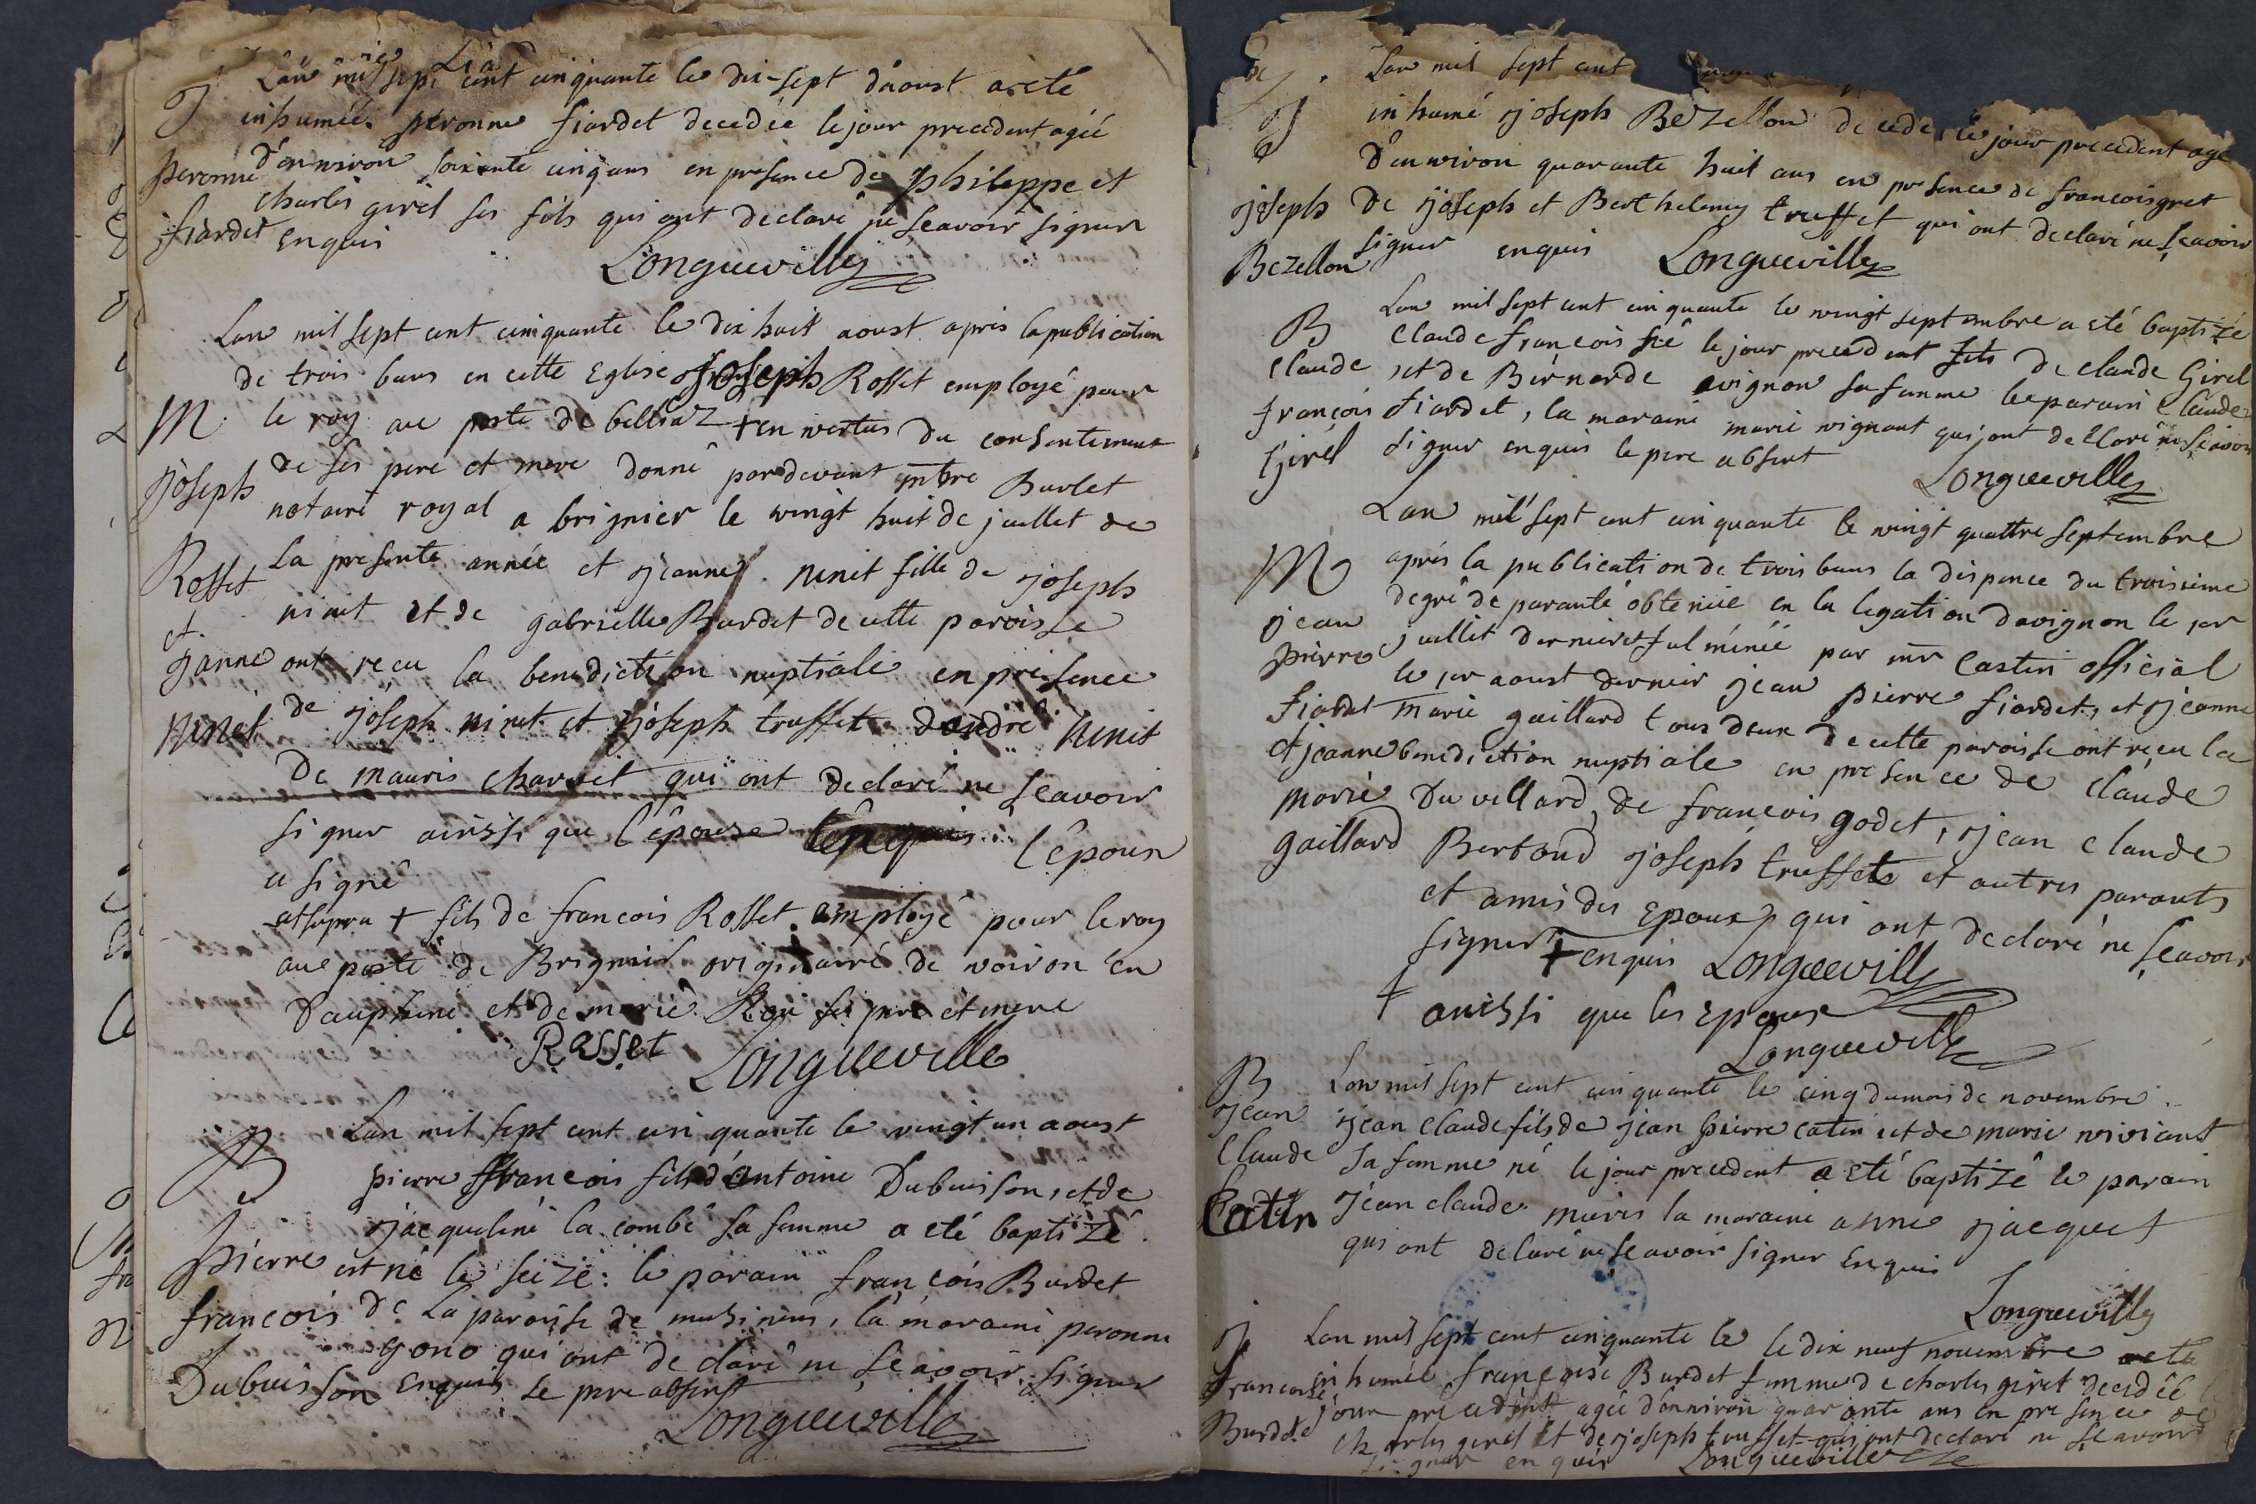 Lan mil sept cent cinquante le dix-sept d'aoust a eté
J inhumée peronne fiardet decedée le jour precedent agée
peronne d'anviron soixante cinq ans en presence de philippe et
charles girel ses fils qui ont declaré ne sçavoir signer
fiardet enquis
Longueville
Lan mil sept cent cinquante le dix huit aoust apris la publication
de trois bans en cette Eglise joseph Rosset employé pour
M le roy au poste de belliaz + en vertus du consentement
joseph de ses pere et mere donné pardevant mtre Burlet
notaire royal a brignier le vingt huit de juillet de
Rosset la presente année et jeanne ninet fille de joseph
et ninet et de gabrielle Burdet de cette paroisse
janne ont recu la benediction nuptiale en presence
ninet de joseph ninet et joseph truffet d'andré ninet
de mauris charvet qui ont declaré ne sçavoir
signer ainssi que l'épouse l'épour
a signé
atsupra + fils de francois Rosset employé pour le roy
au poste de Brignier originairé de voiron en
Dauphiné et de marie Roü ses pere et mere
Rosset Longueville
Lan mil sept cent cinquante le vingt un aoust
B pierre francois fils d'antoine Dubuisson, et de
jacqueline la combe sa femme a eté baptizé
pierre est né le seize: le parain françois Burdet
françois de la paroisse de musinens, la maraine peronne
gono qui ont declaré ne sçavoir signer
Dubuisson enquis le pere absent
Longueville
Lan mil sept cent
J inhumé joseph Bezellon decedé le jour precedent agé
d'anviron quarante huit ans en presence de francois gret
joseph de joseph et Berthelemy truffet qui ont declaré ne sçavoir
Bezellon signer enquis Longueville
Lan mil sept cent cinquante le vingt septembre a eté baptizé
B claude françois né le jour precedent fils de claude Girel
claude et de Bernarde avignon sa femme le parain claude
françois fiardet, la maraine marie vignont qui ont declaré ne sçavoir
Girel signer enquis le pere absent
Longueville
Lan mil sept cent cinquante le vingt quattre septembre
M aprés la publication de trois bans la dispence du troisieme
jean degré de paranté obtenüe en la legation davignon le 1er
pierre juillet dernier et fulminée par mr Castin official
le 1er aoust dernier jean pierre fiardet, et jeanne
fiardet marie gaillard tous deux de cette paroisse ont recu la
et jeanne benediction nuptiale en presence de claude
marie Duvillard, de françois godet, jean claude
gaillard Bertoud joseph truffet et autres parants
et amis des Epoux, qui ont declaré ne sçavoir
signer + enquis Longueville
+ ainssi que les Epoux
Longueville
B Lan mil sept cent cinquante le cinq du mois de novembre
jean jean claude fils de jean pierre catin et de marie viviant
claude sa femme né le jour precedent a eté baptizé le parain
Catin jean claude muris la maraine anne jacquet
qui ont declaré ne sçavoir signer enquis
Longueville
J Lan mil sept cent cinquante le le dix neuf novembre a eté
francoise inhumée françoise Burdet femme de charles giret decedée
Burdet jour precedent agée d'anviron quarante ans en presence de
charles girel et de joseph truffet qui ont declaré ne sçavoir
signer enquis Longueville